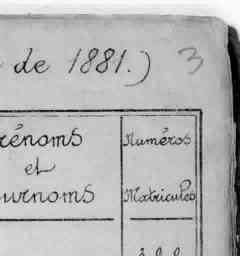 de 1881.) 3
rénoms
et
urnoms
Numéros
Matricules